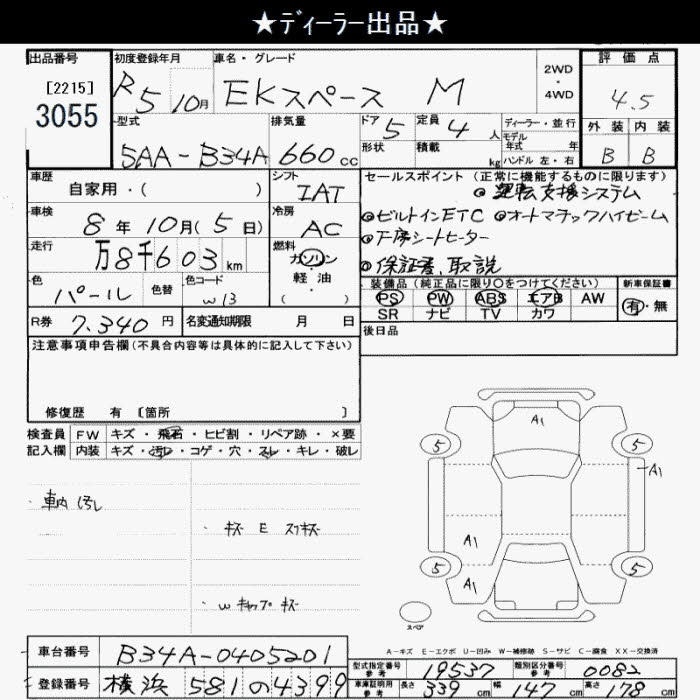 ★ディーラー出品★
出品番号 初度登録年月 車名・グレード 2WD・4WD 評価点
[2215]
3055
R5 10月 EKスペース M 4.5
型式 排気量 ドア 5 定員 4人 ディーラー・並行 外装 内装
モデル年式 年
5AA-B34A 660cc 形状 積載 kg ハンドル 左・右 B B
車歴 シフト セールスポイント (正常に機能するものに限ります)
自家用・( ) IAT ◎運転支援システム
車検 冷房 ◎ビルトインETC ◎オートマチックハイビーム
8年10月(5日) AC
走行 燃料 ◎下席シートヒーター
万8千603km ガソリン
軽油 ◎保証書、取説
色 色替 色コード ( 装備品(純正品に限り○をつけてください) 新車保証書
パール W13 PS PW ABS エアB AW 有・無
SR ナビ TV カワ
R券 7,340円 名変通知期限 月 日 後日品
注意事項申告欄(不具合内容等は具体的に記入して下さい)
修復歴 有 〔箇所 〕
検査員 FW キズ・飛石・ヒビ割・リペア跡・×要
記入欄 内装 キズ・汚レ・コゲ・穴・スレ・キレ・破レ
・車内汚レ
・キズ E スリキズ
・Wキャップキズ
A1
5 5
A1
A1
5 5
A1
スペア
A-キズ E-エクボ U-凹み W-補修跡 S-サビ C-腐食 XX-交換済
車台番号 B34A-0405201
型式指定番号 参考 19537 類別区分番号 参考 0082
登録番号 横浜 581 の 4399
車庫証明用 参考 長さ 339cm 幅 147cm 高さ 178cm